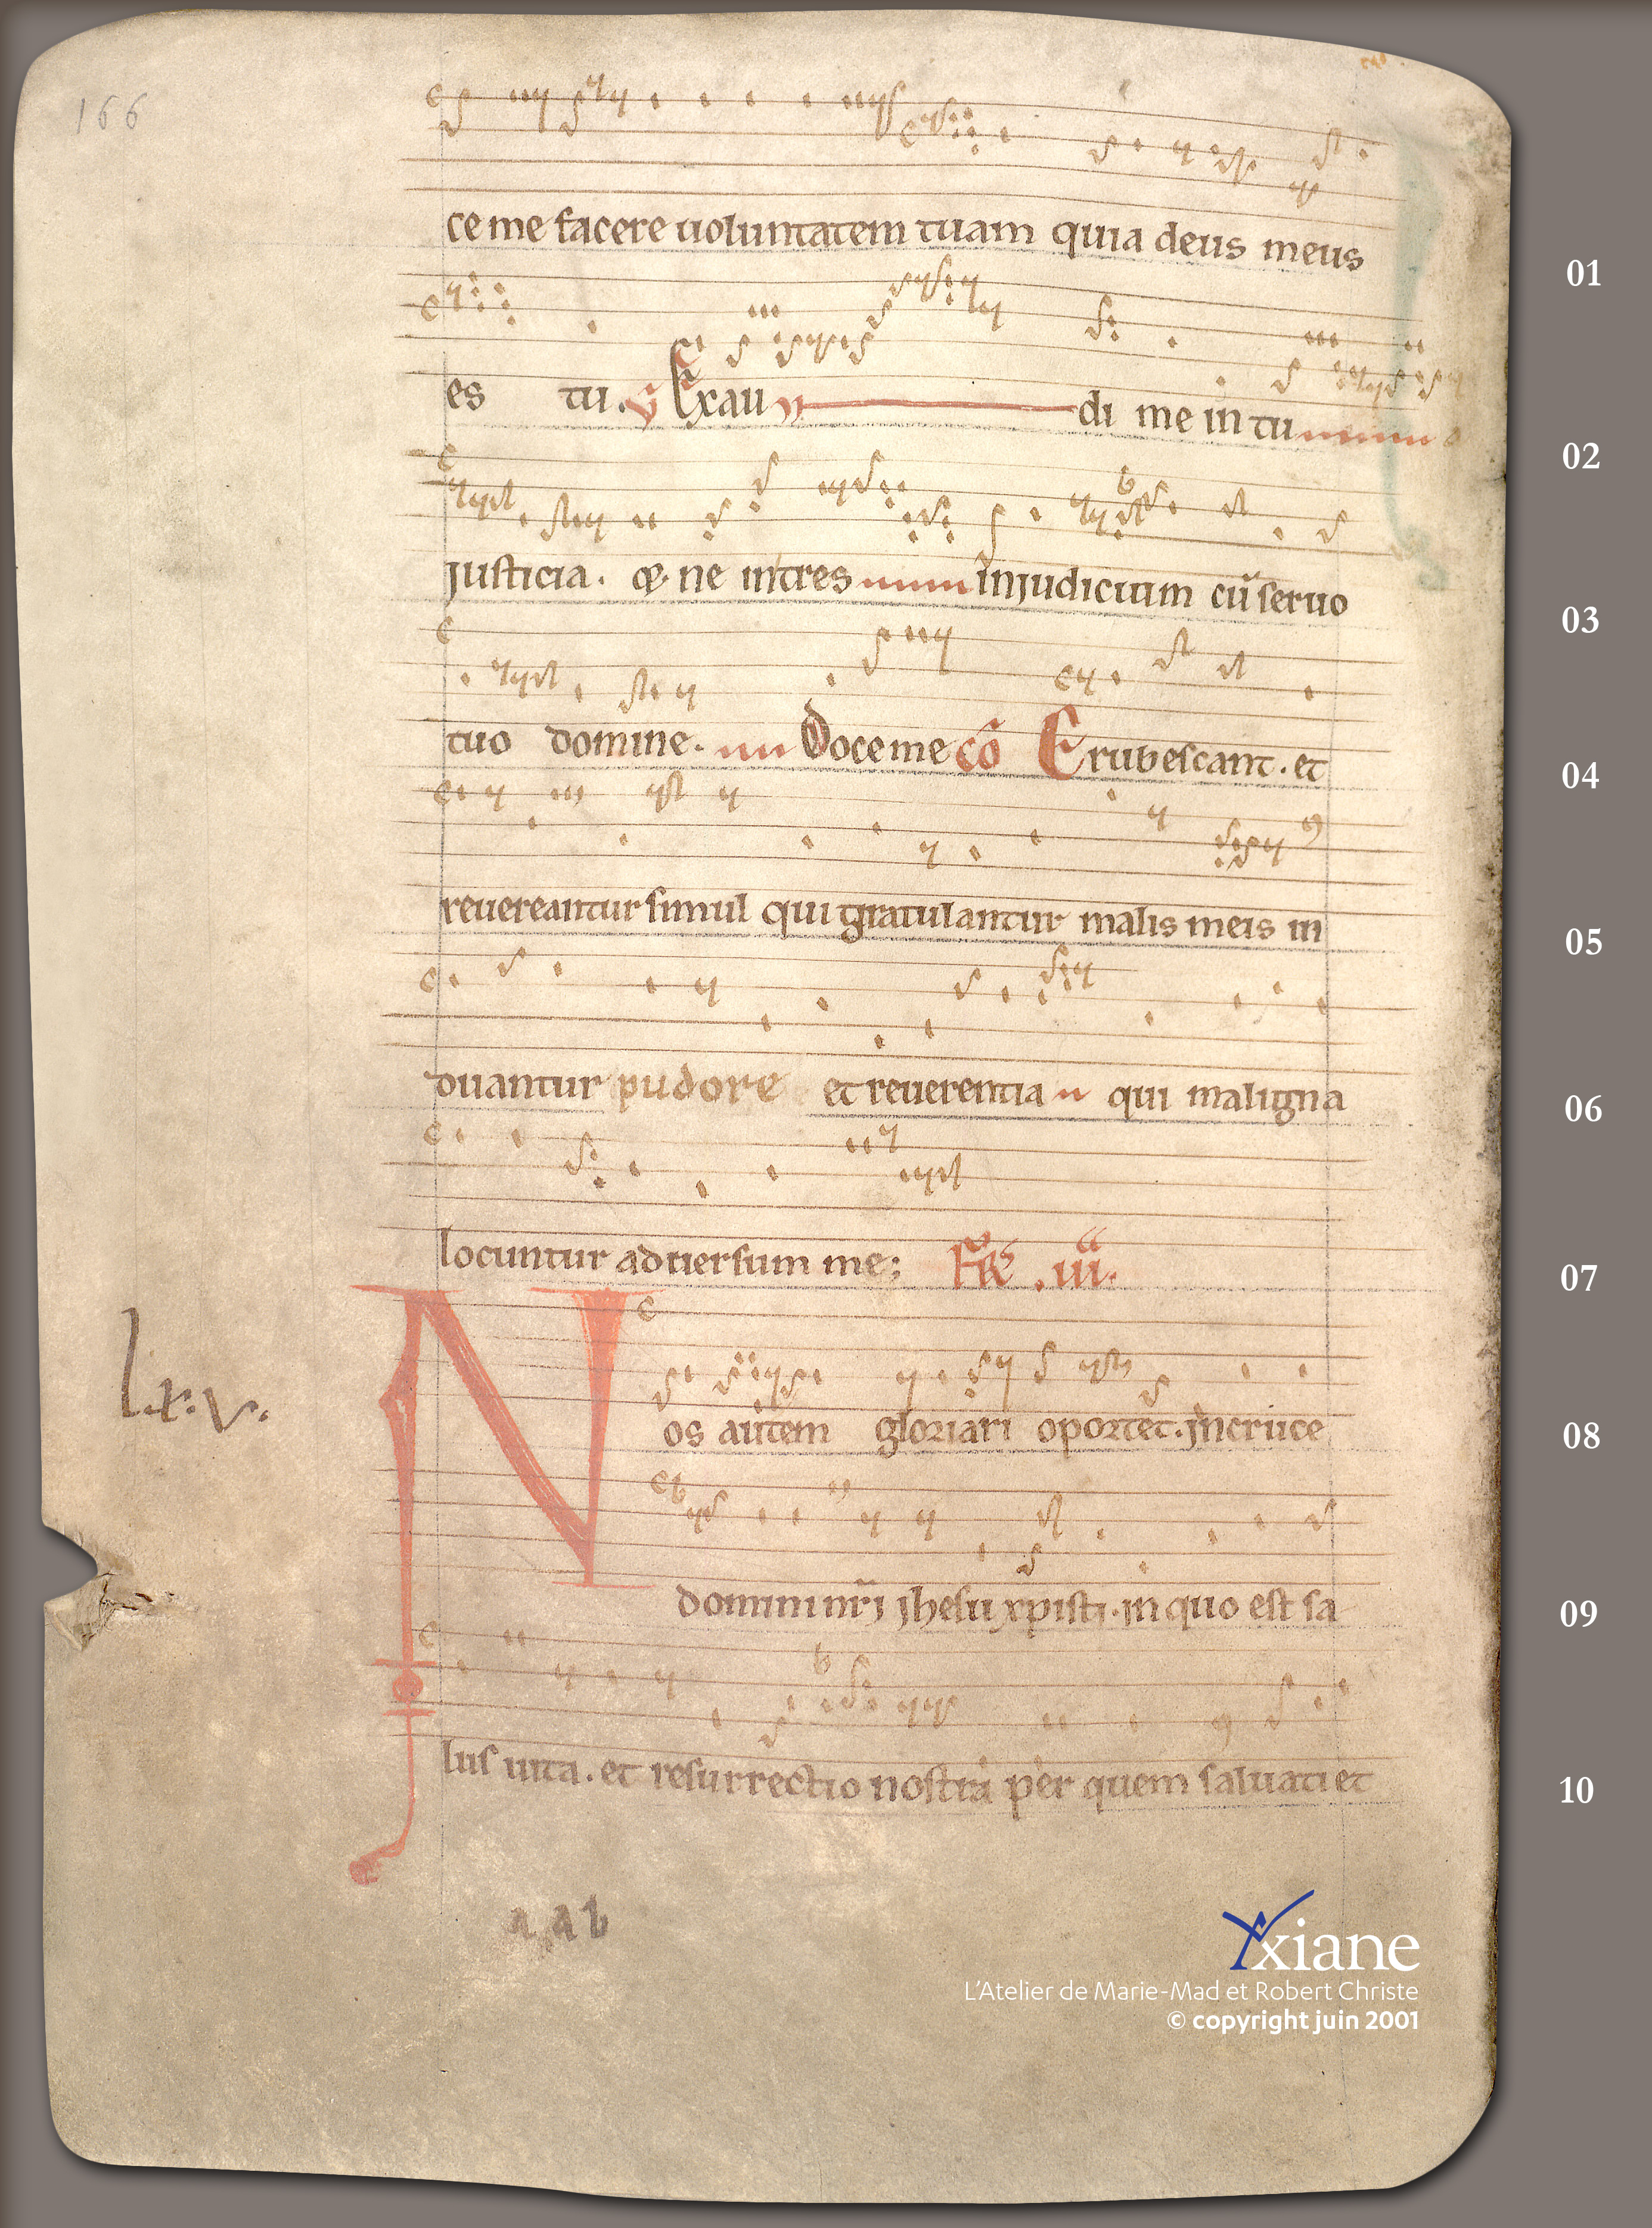 166
ce me facere uoluntatem tuam quia deus meus
01
es tu. Exau di me in tu a
02
justicia. & ne intres in judicium cū seruo
03
tuo domine. Doce me cō Erubescant. et
04
reuereantur simul qui gratulantur malis meis in
05
duantur pudore et reuerentia qui maligna
06
locuntur aduersum me; .iii.
07
Nos autem gloriari oportet. jn cruce
lx.v.
08
domini nr̄j jhesu xpisti. jn quo est sa
09
lus uita. et resurrectio nostra per quem saluati et
10
a a b
Yxiane
L'Atelier de Marie-Mad et Robert Christe
© copyright juin 2001